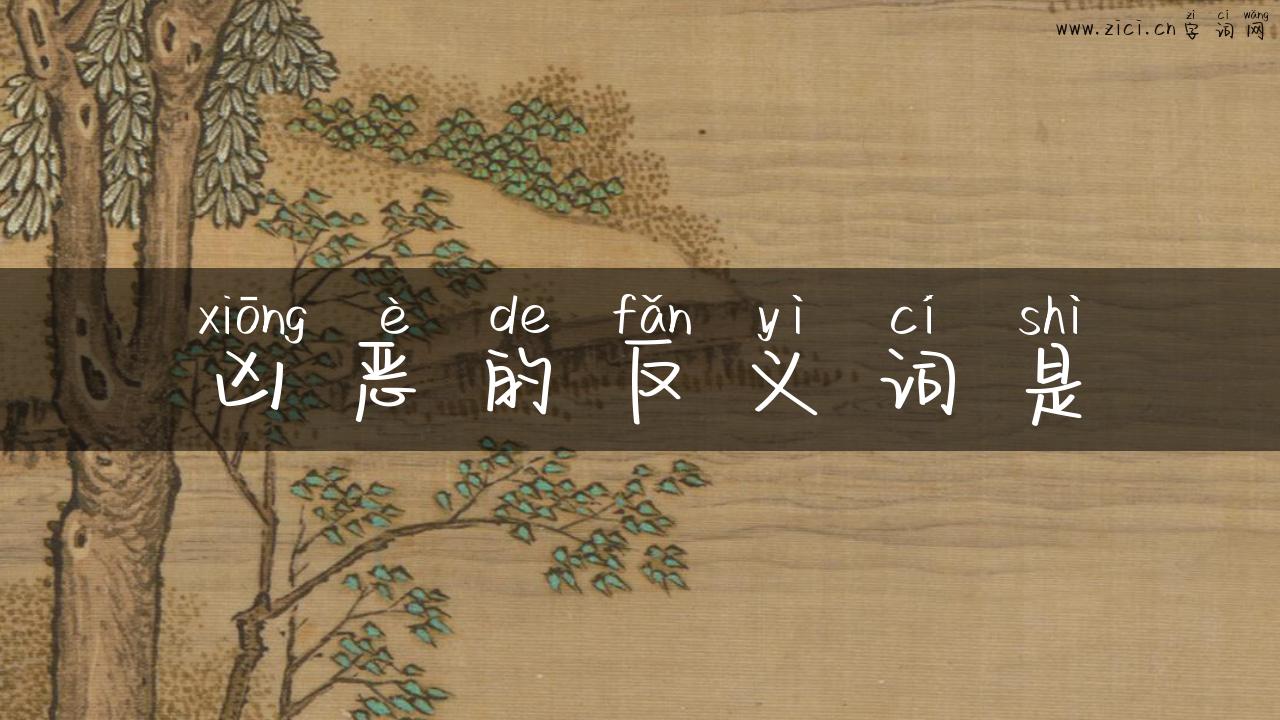 zì cí wǎng
www.zici.cn 字词网
xiōng è de fǎn yì cí shì
凶恶的反义词是